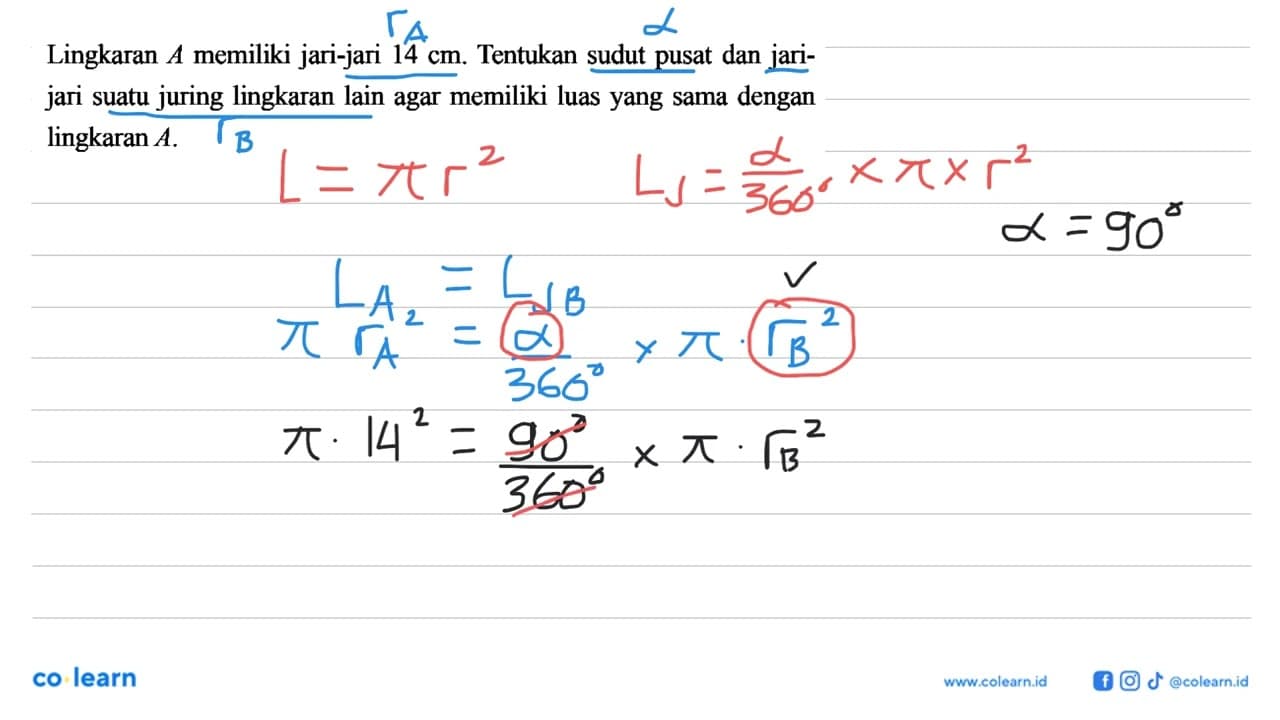 r_A α
Lingkaran A memiliki jari-jari 14 cm. Tentukan sudut pusat dan jari-
jari suatu juring lingkaran lain agar memiliki luas yang sama dengan
lingkaran A. r_B
L = π r² L_J = α/360° × π × r²
α = 90°
L_A = L_JB ✓
π r_A² = α/360° × π · r_B²
π · 14² = 90°/360° × π · r_B²
co learn www.colearn.id @colearn.id